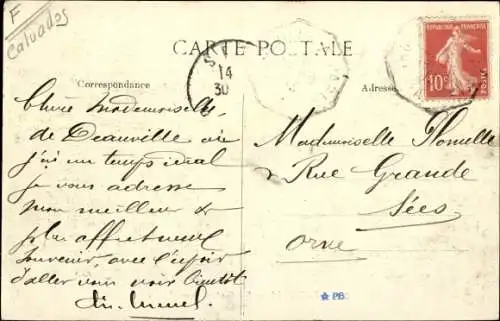 F
Calvados
CARTE POSTALE
REPUBLIQUE FRANÇAISE
10c
POSTES
14
30
Correspondance
Adresse
Chère Mademoiselle
de Deauville où
j'ai un temps idéal
je vous adresse
mon meilleur &
plus affectueux
souvenir, avec l'espoir
d'aller vous voir bientôt
Mademoiselle
Rue Grande
Sées
Orne
PB